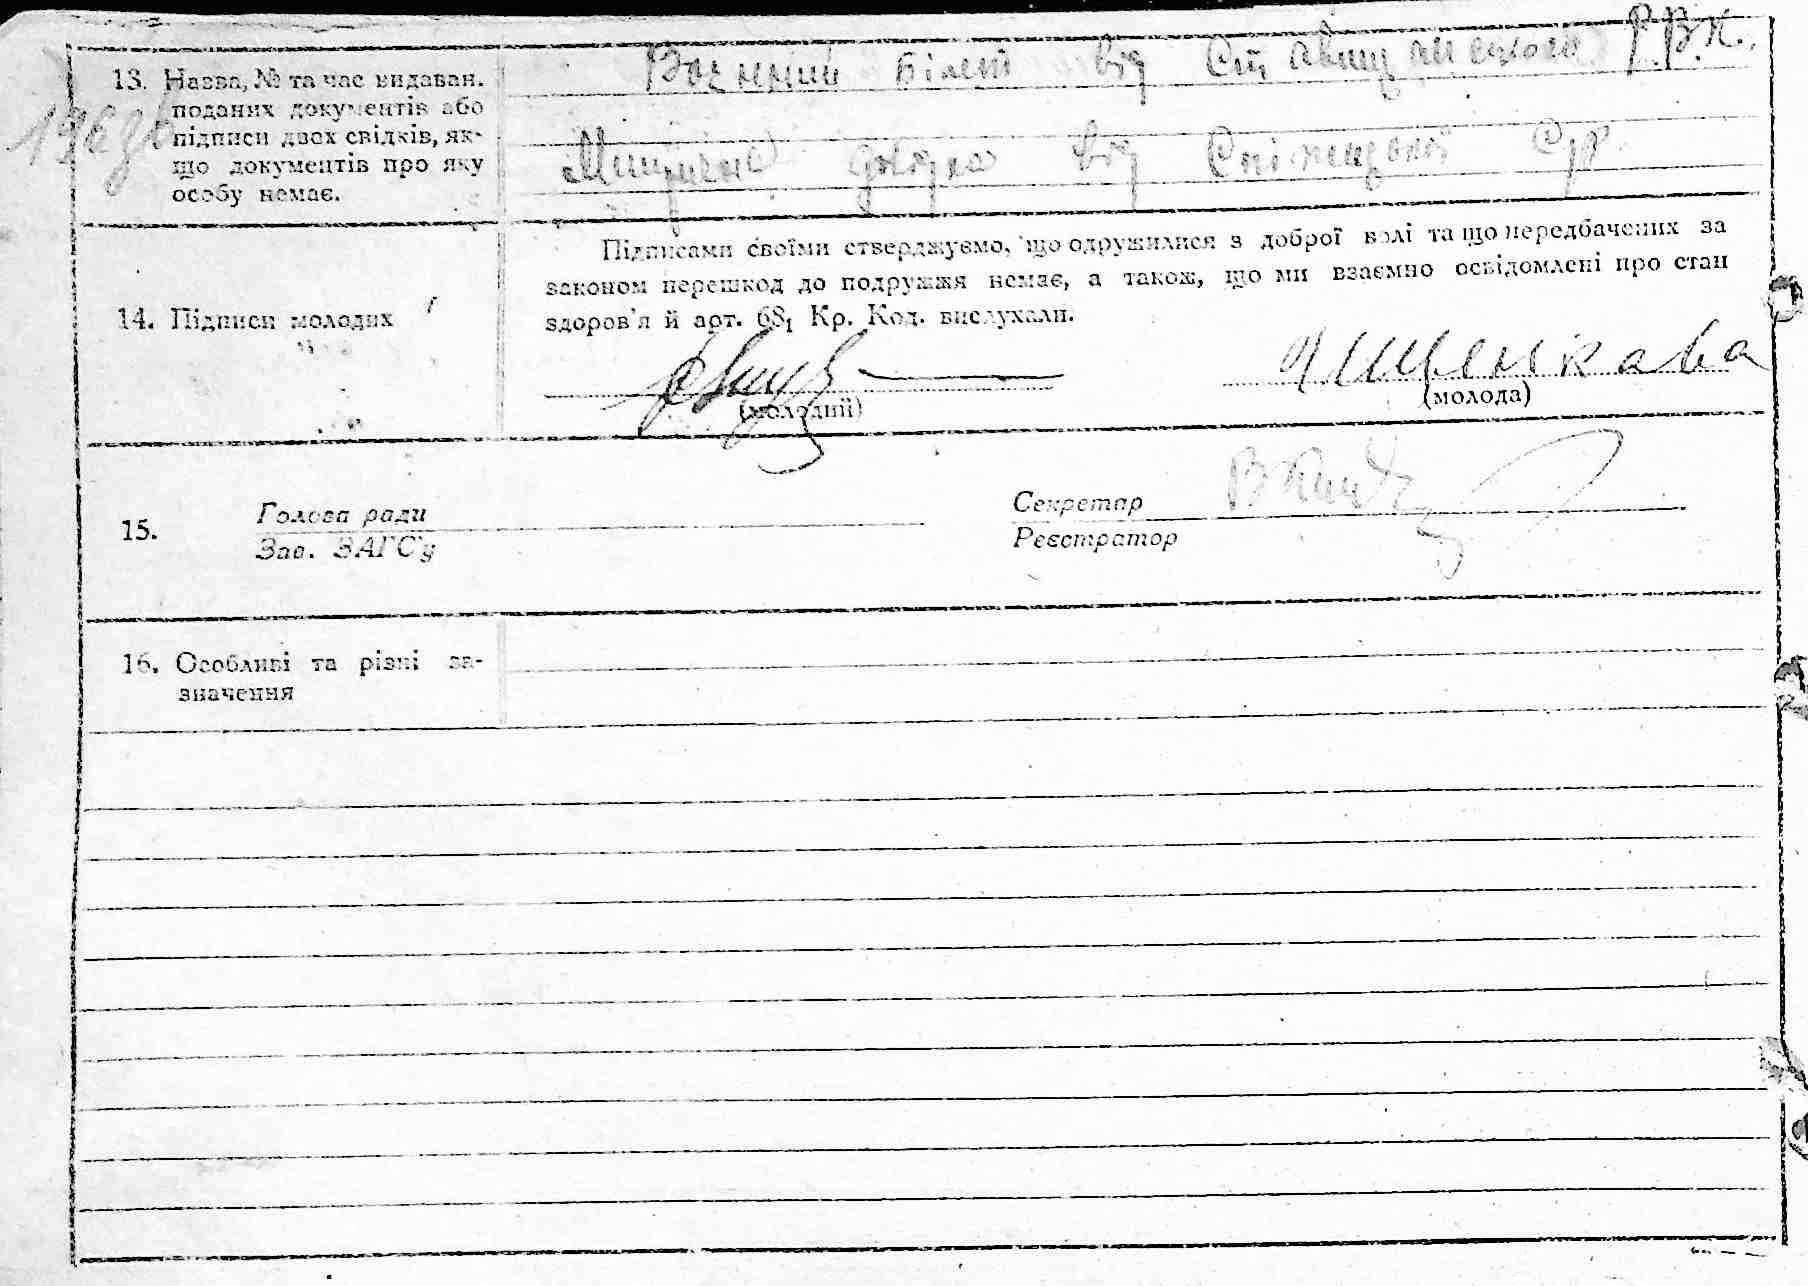 13. Назва, № та час видаван.
поданих документів або
підписи двох свідків, як-
що документів про яку
особу немає.
Воєнний білет від Ставищанського Р.В.К.
довідка від С/Р.
14. Підписи молодих
Підписами своїми стверджуємо, що одружилися з доброї волі та що передбачених за
законом перешкод до подружжя немає, а також, що ми взаємно освідомлені про стан
здоров'я й арт. 68₁ Кр. Код. вислухали.
Ященкова
(молодий)
(молода)
15.
Голова ради
Зав. ЗАГС'у
Секретар
Реєстратор
16. Особливі та різні за-
значення